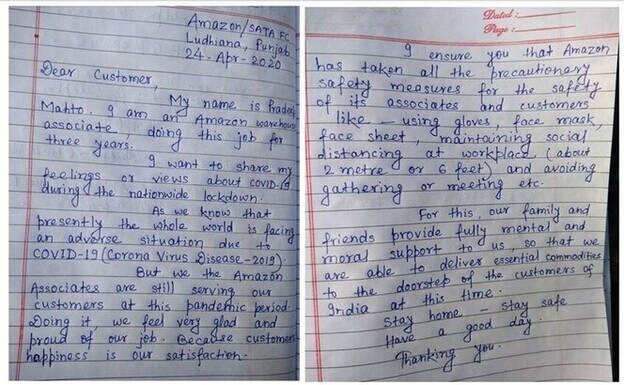 Amazon/SATA FC
Ludhiana, Punjab
24-Apr-2020
Dear Customer,
My name is Pradeep
Mahto. I am an Amazon warehouse
associate, doing this job for
three years.
I want to share my
feelings or views about COVID-19
during the nationwide lockdown.
As we know that
presently the whole world is facing
an adverse situation due to
COVID-19 (Corona Virus Disease-2019).
But we the Amazon
Associates are still serving our
customers at this pandemic period.
Doing it, we feel very glad and
proud of our job. Because customer
happiness is our satisfaction.
Dated:
Page:
I ensure you that Amazon
has taken all the precautionary
safety measures for the safety
of its associates and customers
like - using gloves, face mask,
face sheet, maintaining social
distancing at workplace (about
2 metre or 6 feet) and avoiding
gathering or meeting etc.
For this, our family and
friends provide fully mental and
moral support to us, so that we
are able to deliver essential commodities
to the doorstep of the customers of
India at this time.
Stay home - stay safe
Have a good day.
Thanking you.